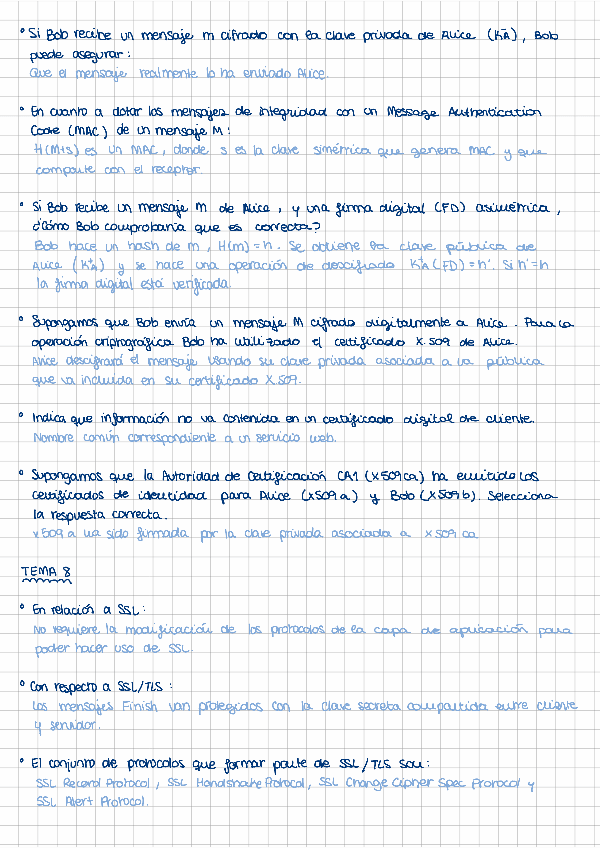 ° Si Bob recibe un mensaje m cifrado con la clave privada de Alice (K⁻A), Bob
puede asegurar:
Que el mensaje realmente lo ha enviado Alice.
° En cuanto a dotar los mensajes de integridad con un Message Authentication
Code (MAC) de un mensaje M:
H(M+s) es un MAC, donde s es la clave simétrica que genera MAC y que
comparte con el receptor
° Si Bob recibe un mensaje m de Alice, y una firma digital (FD) asimétrica,
¿Cómo Bob comprobaría que es correcta?
Bob hace un hash de m, H(m)=h. Se obtiene la clave pública de
Alice (K⁺A) y se hace una operación de descifrado K⁺A(FD)=h'. Si h'=h
la firma digital está verificada.
° Supongamos que Bob envía un mensaje M cifrado digitalmente a Alice. Para la
operación criptográfica Bob ha utilizado el certificado X.509 de Alice.
Alice descifrará el mensaje usando su clave privada asociada a la pública
que va incluida en su certificado X.509.
° Indica que información no va contenida en un certificado digital de cliente.
Nombre común correspondiente a un servicio web.
° Supongamos que la Autoridad de Certificación CA1 (x509ca) ha emitido los
certificados de identidad para Alice (x509a) y Bob (x509b). Selecciona
la respuesta correcta.
x509a ha sido firmada por la clave privada asociada a x509ca
TEMA 8
° En relación a SSL:
No requiere la modificación de los protocolos de la capa de aplicación para
poder hacer uso de SSL.
° Con respecto a SSL/TLS:
Los mensajes Finish van protegidos con la clave secreta compartida entre cliente
y servidor.
° El conjunto de protocolos que formar parte de SSL/TLS son:
SSL Record Protocol, SSL Handshake Protocol, SSL Change Cipher Spec Protocol y
SSL Alert Protocol.